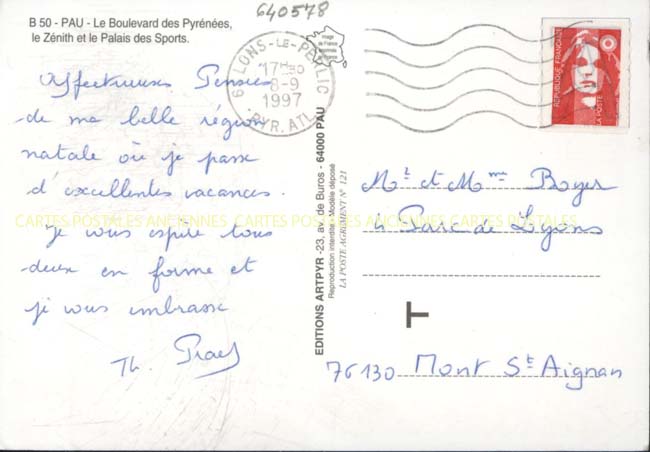 640578
B 50 - PAU - Le Boulevard des Pyrénées,
le Zénith et le Palais des Sports.
64 LONS-LE-PEILLIC
17H
8-9
1997
PYR. ATL
REPUBLIQUE FRANÇAISE
LA POSTE
Affectueuses Pensées
de ma belle région
natale où je passe
d'excellentes vacances.
Je vous espère tous
deux en forme et
je vous embrasse
Th.
EDITIONS ARTPYR -23, av. de Buros - 64000 PAU
Reproduction interdite - Modèle déposé
LA POSTE AGREMENT N° 121
Mr et Mme Boyer
4 Parc de Lyons
T
76130 Mont St Aignan
CARTES POSTALES ANCIENNES CARTES POSTALES ANCIENNES CARTES POSTALES